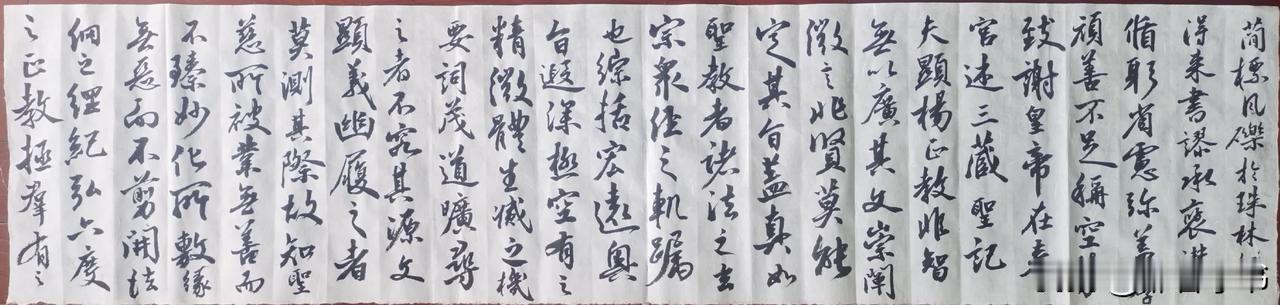 簡標瓦礫於珠林
得来書謬承褒讃
循躬省慮弥蓋
顔善不足稱空
致謝皇帝在春
宫述三藏聖記
夫顯楊正教非智
無以廣其文崇闡
微言非賢莫能
定其旨蓋真如
聖教者諸法之玄
宗衆經之軌躅
也綜括宏遠奥
旨遐深極空有之
精微體生滅之機
要詞茂道曠尋
之者不究其源文
顯義幽履之者
莫測其際故知聖
慈所被業無善而
不臻妙化所敷緣
無惡而不剪開法
網之綱紀弘六度
之正教拯羣有之